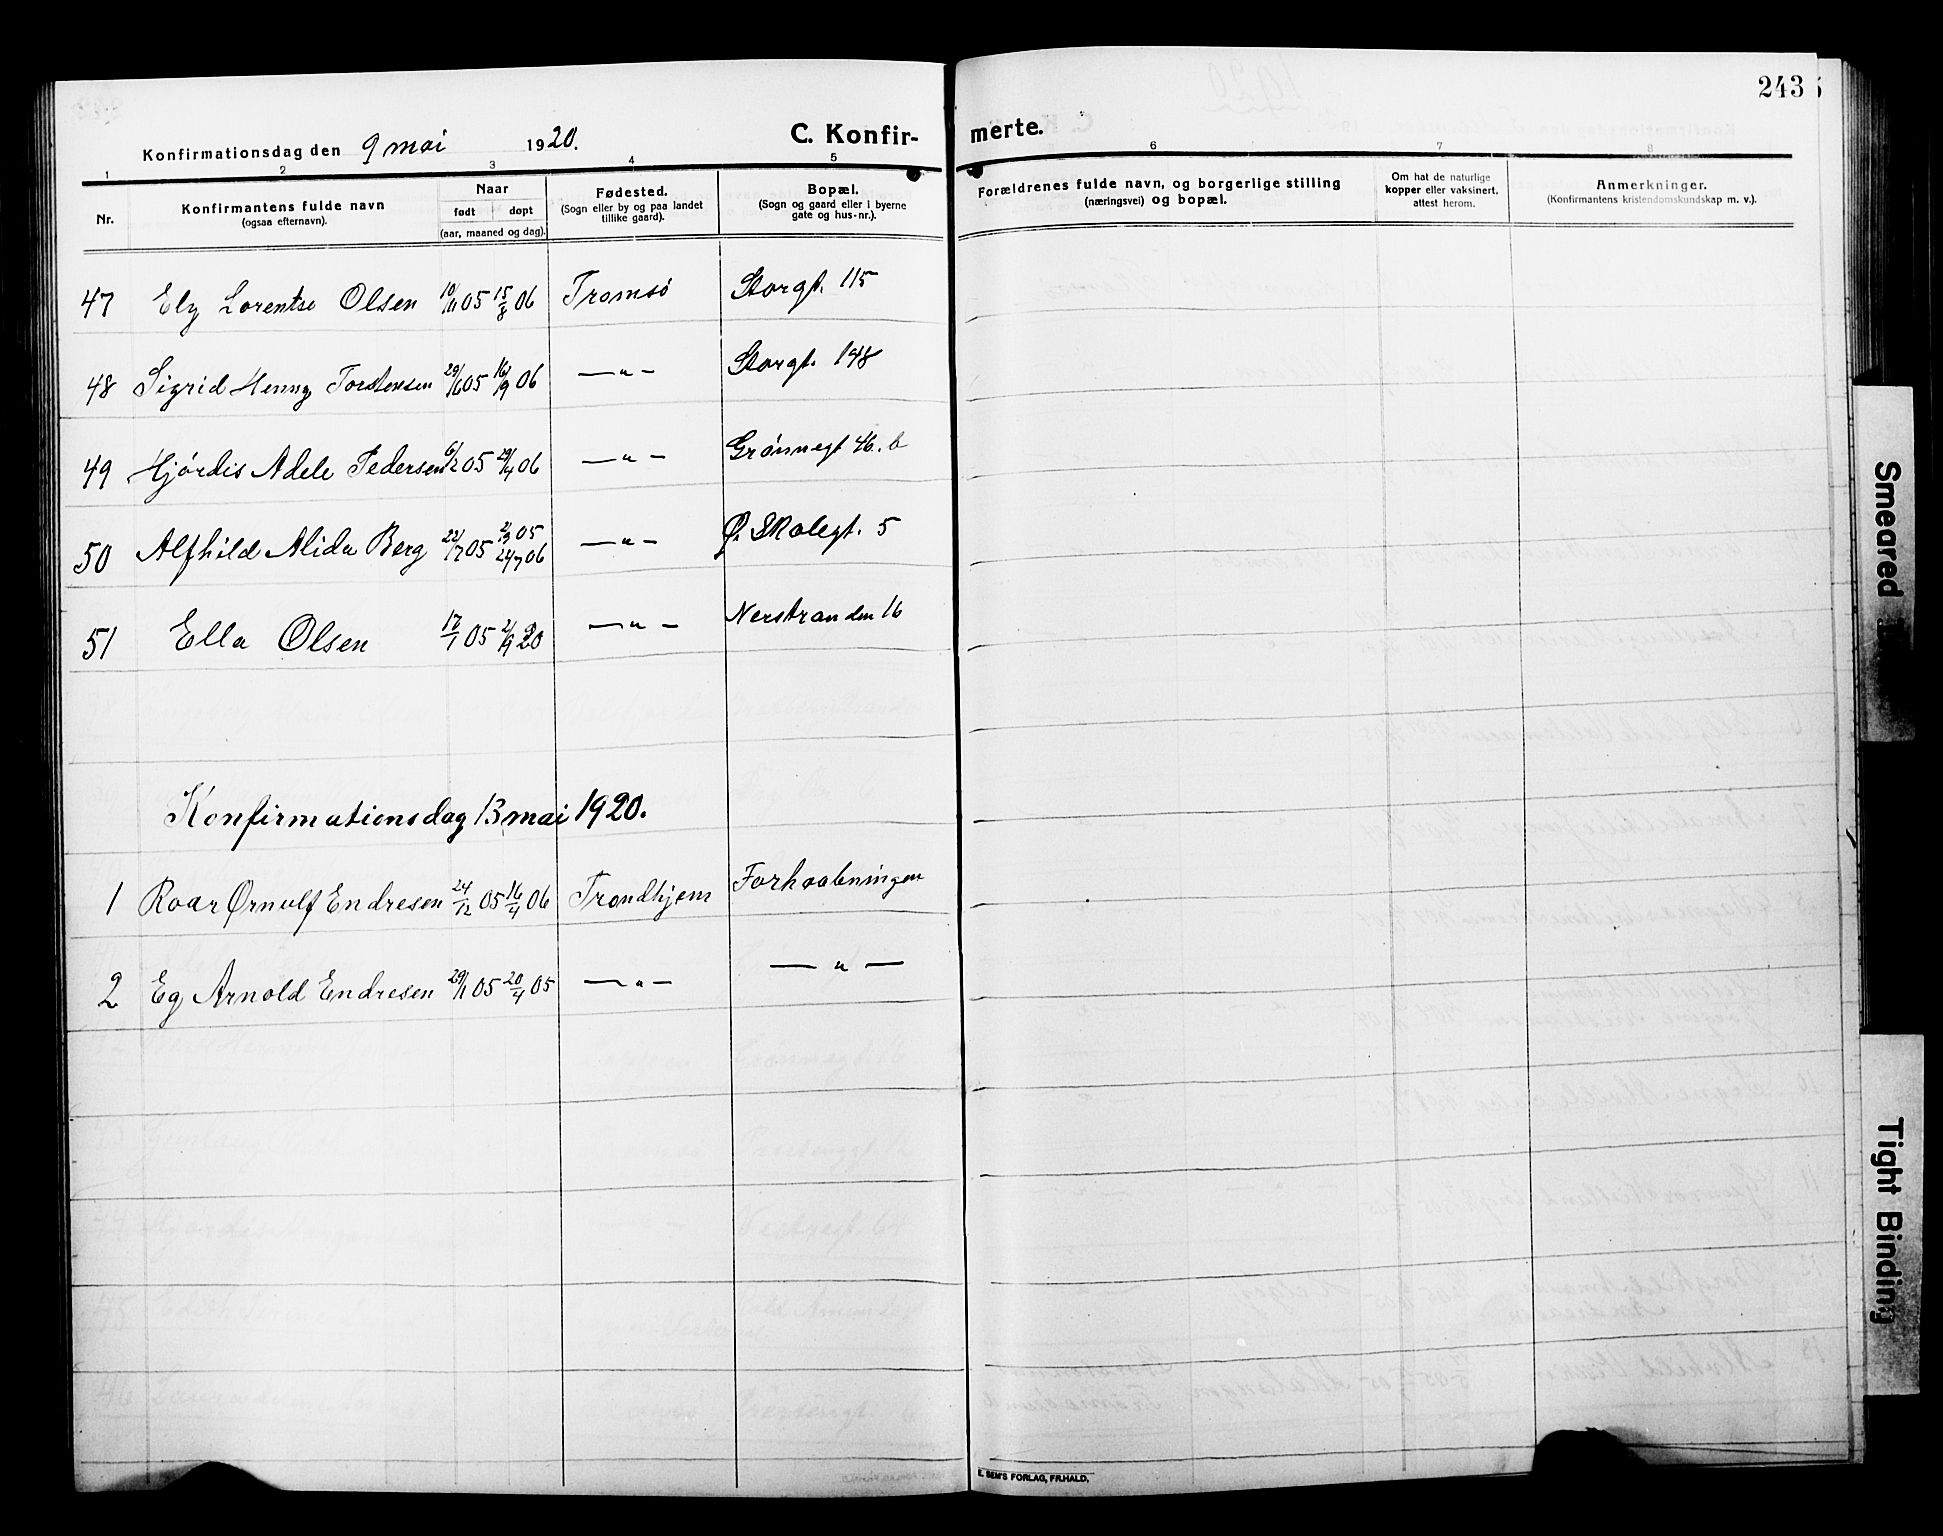 243
C. Konfirmerte.
Konfirmationsdag den 9 mai 1920.
1 2 3 4 5 6 7 8
Nr.
Konfirmantens fulde navn
(ogsaa efternavn).
Naar
født døpt
(aar, maaned og dag).
Fødested.
(Sogn eller by og paa landet
tillike gaard).
Bopæl.
(Sogn og gaard eller i byerne
gate og hus-nr.).
Forældrenes fulde navn, og borgerlige stilling
(næringsvei) og bopæl.
Om hat de naturlige
kopper eller vaksinert,
attest herom.
Anmerkninger.
(Konfirmantens kristendomskundskap m. v.).
47 Ely Lorentse Olsen 10/11 05 15/8 06 Tromsø Storgt. 115
48 Sigrid Henny Torstensen 29/6 05 16/9 06 —"— Storgt. 148
49 Hjørdis Adele Pedersen 6/2 05 29/4 06 —"— Grønnegt 46. b
50 Alfhild Alida Berg 22/7 05 2/9 05 24/7 06 —"— Ø. Skolegt. 5
51 Ella Olsen 17/1 05 2/9 20 —"— Nerstranden 16
Konfirmationsdag 13 mai 1920.
1 Roar Ørnulf Endresen 24/12 05 16/4 06 Trondhjem Forhaabningen
2 Eg Arnold Endresen 29/1 05 20/4 05 —"— —"—
E. SEM'S FORLAG, FR.HALD.
Smeared
Tight Binding